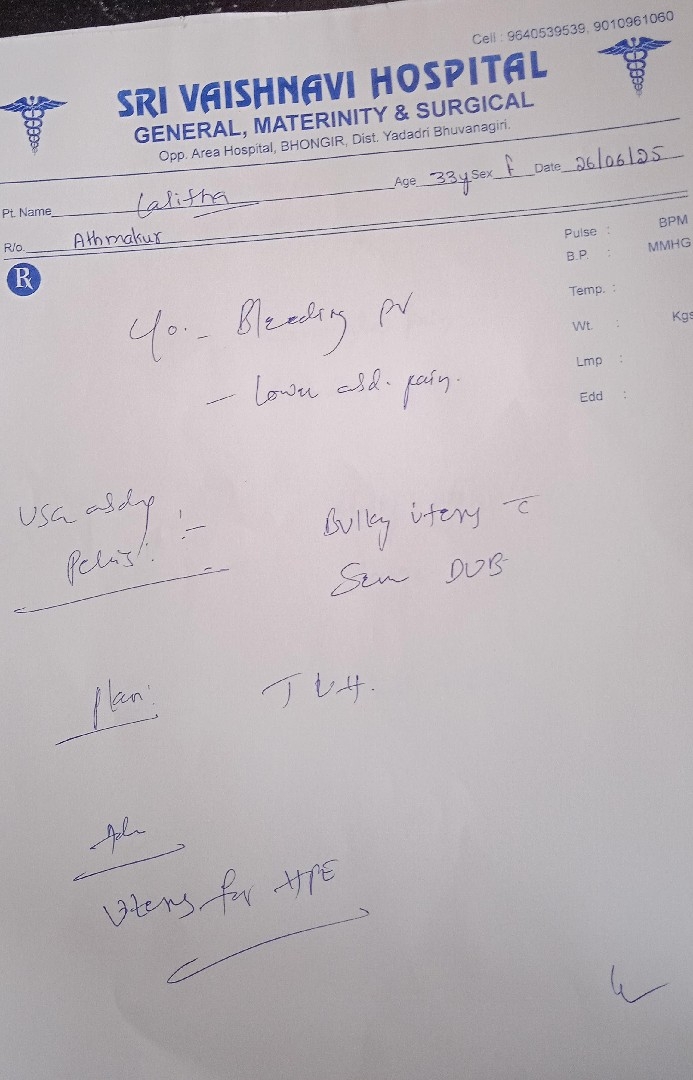 Cell : 9640539539, 9010961060
SRI VAISHNAVI HOSPITAL
GENERAL, MATERINITY & SURGICAL
Opp. Area Hospital, BHONGIR, Dist. Yadadri Bhuvanagiri.
Pt. Name Lalitha Age 33y Sex f Date 26/06/25
R/o. Athmakur
Pulse : BPM
B.P. : MMHG
Temp. :
Wt. : Kgs
Lmp :
Edd :
Rx
c/o. - Bleeding PV
- Lower abd. pain.
USG abd
Pelvis :-
Bulky uterus c̄
DUB
Plan: TVH.
Adv
Uterus for HPE